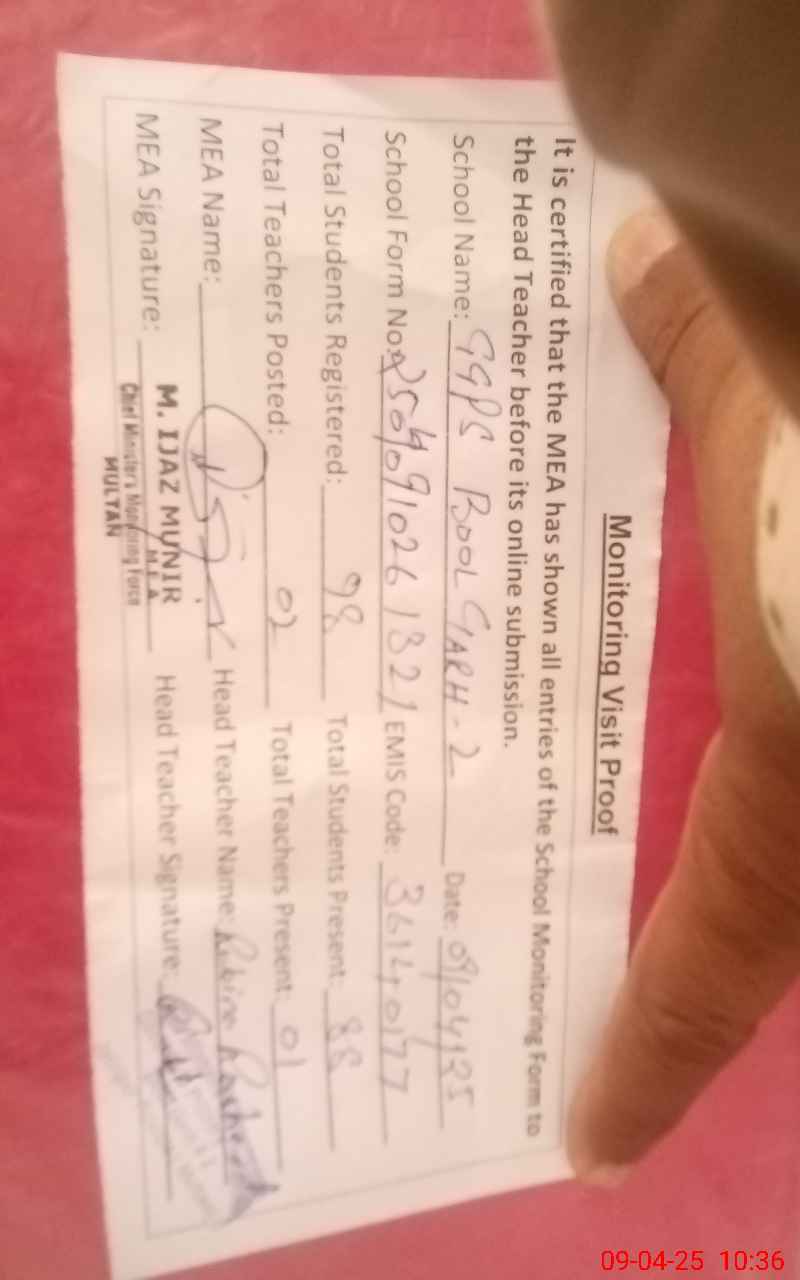 Monitoring Visit Proof
It is certified that the MEA has shown all entries of the School Monitoring Form to
the Head Teacher before its online submission.
School Name: GGPS BOOL GARH - 2 Date: 09/04/25
School Form No: EMIS Code: 36140177
Total Students Registered: 98 Total Students Present: 88
Total Teachers Posted: 02 Total Teachers Present: 01
MEA Name: Head Teacher Name: Rubina Rasheed
MEA Signature: M. IJAZ MUNIR Head Teacher Signature:
M.E.A
Chief Minister's Monitoring Force
MULTAN
09-04-25 10:36